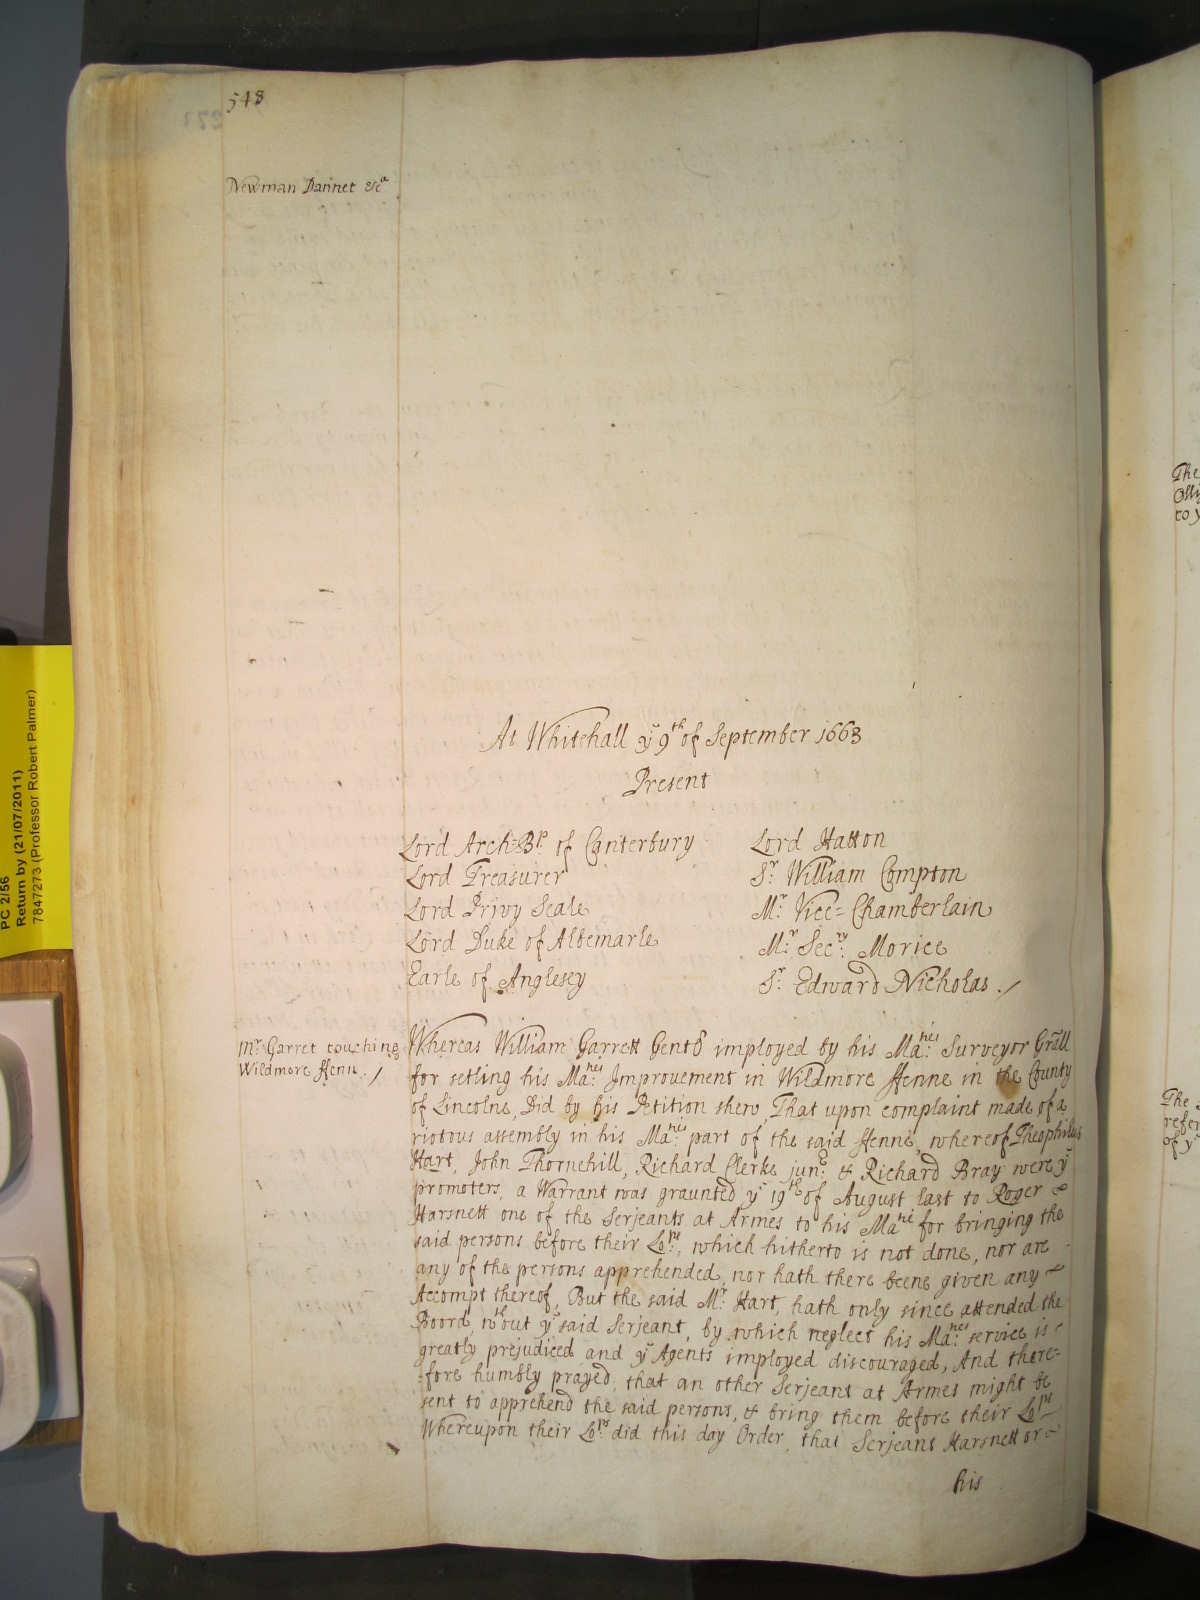 548
Newman Dannet &c.a
At Whitehall ye 9th of September 1663
Present
Lord Arch-Bp. of Canterbury
Lord Treasurer
Lord Privy Seale
Lord Duke of Albemarle
Earle of Anglesey
Lord Hatton
Sr. William Compton
Mr. Vice=Chamberlain
Mr. Secry. Morice
Sr. Edward Nicholas ./
Mr. Garret touching
Wildmore ffenn ./
Whereas William Garrett Gent imployed by his Maties. Surveyor Grall
for setling his Maties. Improvement in Wildmore ffenne in the County
of Lincolne, Did by his Petition shew, That upon complaint made of a
riotous assembly in his Maties. part of the said ffenne, whereof Theophilus
Hart, John Thornehill, Richard Clerke junr. & Richard Bray were ye
promoters, a Warrant was graunted ye 19th of August last to Roger
Harsnett one of the Serjeants at Armes to his Matie for bringing the
said persons before their Lopps., which hitherto is not done, nor are
any of the persons apprehended, nor hath there beene given any
Accompt thereof, But the said Mr. Hart, hath only since attended the
Boord, wthout ye said Serjeant, by which neglect his Maties. service is
greatly prejudiced and ye Agents imployed discouraged, And there=
fore humbly prayed, that an other Serjeant at Armes might be
sent to apprehend the said persons, & bring them before their Lopps
Whereupon their Lopps. did this day Order, that Serjeant Harsnett or
his
The
to y
The
refer
of ye
PC 2/56
Return by (21/07/2011)
7847273 (Professor Robert Palmer)